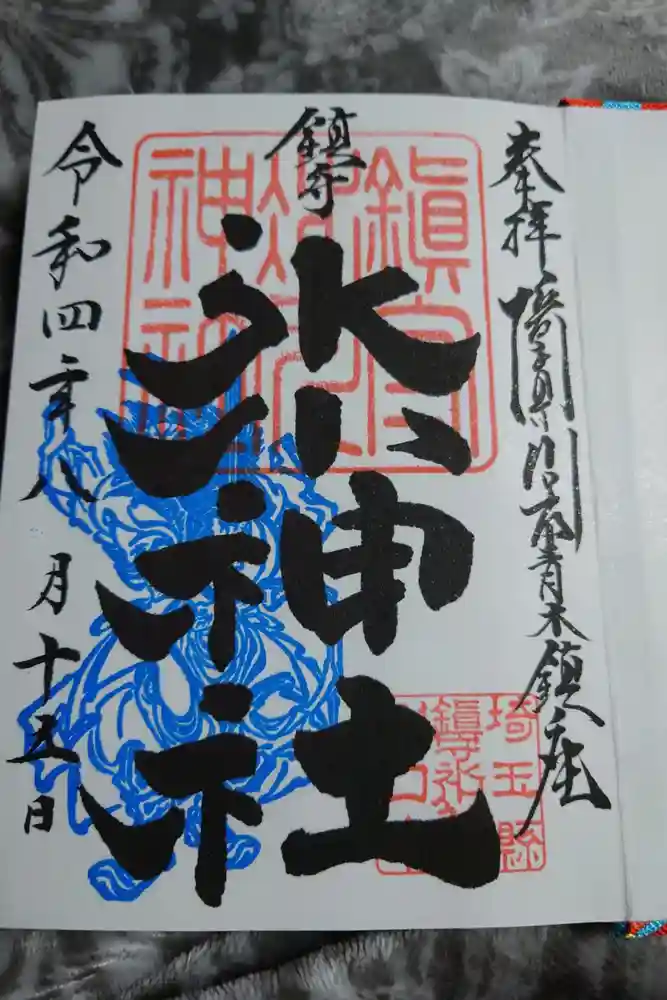 奉拝 埼玉県川口市青木鎮座
鎮守
氷川神社
令和四年八月十五日
鎮守
神社
埼玉縣
鎮守氷